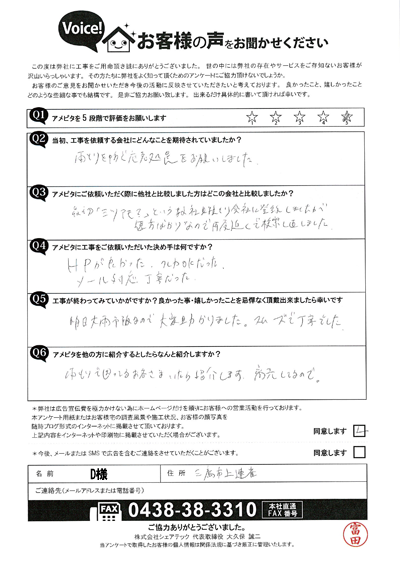 Voice!
お客様の声をお聞かせください
この度は弊社に工事をご用命頂き誠にありがとうございました。世の中には弊社の存在やサービスをご存知ないお客様が
沢山いらっしゃいます。その方たちに弊社をよく知って頂くためのアンケートにご協力頂けないでしょうか。
お客様のご意見をお聞かせいただき今後の活動に反映させていただきたいと考えております。良かったこと、嬉しかったこと
どのような些細な事でも結構です。是非ご協力お願い致します。出来るだけ具体的に書いて頂ければ幸いです。
Q1 アメピタを5段階で評価をお願いします
Q2 当初、工事を依頼する会社にどんなことを期待されていましたか?
雨もりを防ぐ応急処置をお願いしました。
Q3 アメピタにご依頼いただく際に他社と比較しました方はどこの会社と比較しましたか?
Q4 アメピタに工事をご依頼いただいた決め手は何ですか?
HPが良かった。
メール対応 丁寧だった
Q5 工事が終わってみていかがですか?良かった事・嬉しかったことを忌憚なく頂戴出来ましたら幸いです
明日大雨予報なので大変助かりました。スムーズで丁寧でした
Q6 アメピタを他の方に紹介するとしたらなんと紹介しますか?
*弊社は広告宣伝費を極力かけない為にホームページだけを頼りにお客様への営業活動を行っております。
本アンケート用紙またはお客様宅の調査風景や施工状況、お客様の顔写真を
随時ブログ形式のインターネットに掲載させて頂いております。
上記内容をインターネットや印刷物に掲載させていただく場合がございます。
同意します
*今後、メールまたはSMSで広告を含むご連絡をさせていただくことがございます。
同意します
名前 D様 住所
ご連絡先(メールアドレスまたは電話番号)
FAX 0438-38-3310 本社直通 FAX番号
ご協力ありがとうございました。
株式会社シェアテック 代表取締役 大久保 誠二
当アンケートで取得したお客様の個人情報は関係法規に基づき厳正に管理いたします。
富田